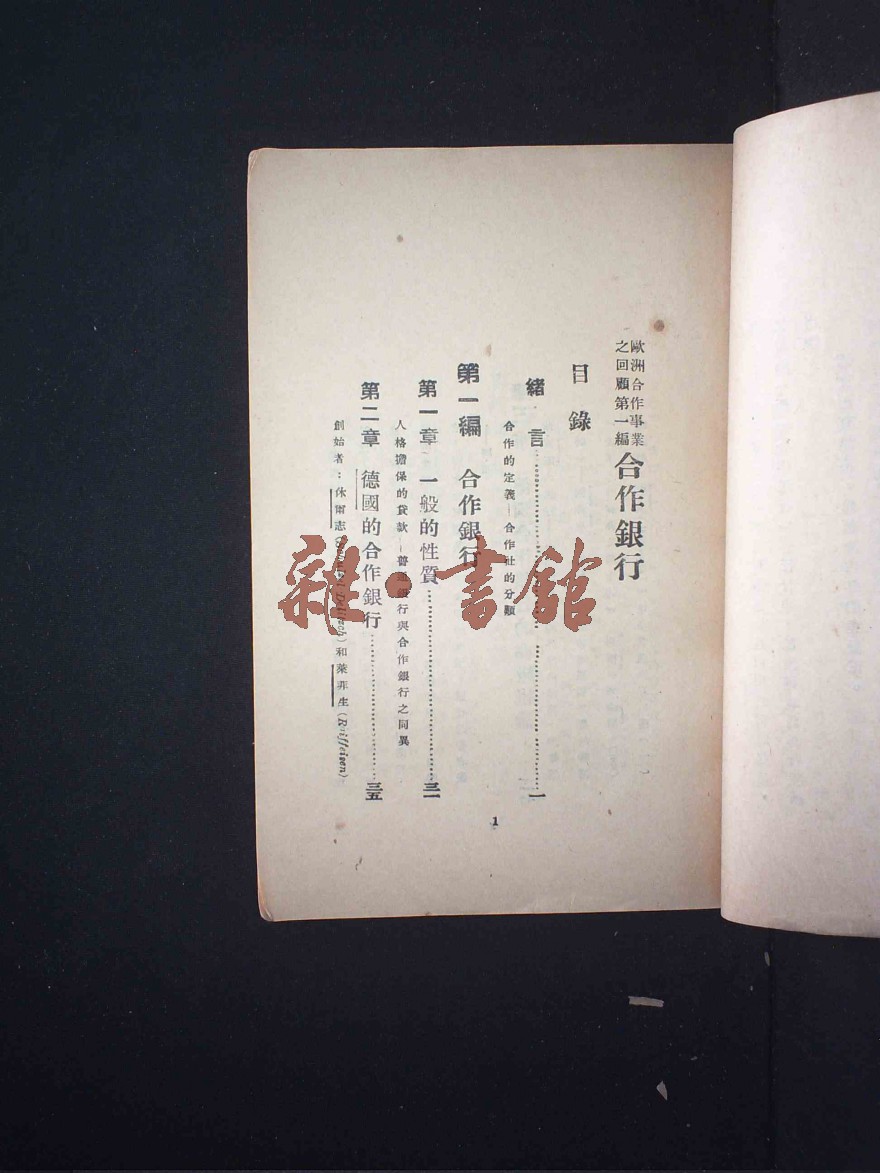 歐洲合作事業
之回顧第一編
合作銀行
目錄
緒言……一
合作的定義—合作社的分類
第一編 合作銀行
第一章 一般的性質……三一
人格擔保的貸款—普通銀行與合作銀行之同異
第二章 德國的合作銀行……三五
創始者：休爾志 Delitzsch)和萊非生(Raiffeisen)
1
雜·書館